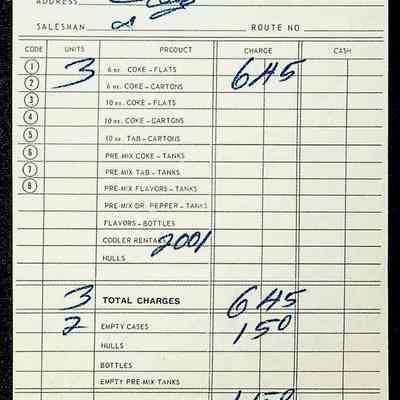 ADDRESS
SALESMAN ROUTE NO
CODE UNITS PRODUCT CHARGE CASH
1 3 6 oz. COKE-FLATS 645
2 6 oz. COKE-CARTONS
3 10 oz. COKE-FLATS
4 10 oz. COKE-CARTONS
5 10 oz. TAB-CARTONS
6 PRE-MIX COKE-TANKS
7 PRE-MIX TAB-TANKS
8 PRE-MIX FLAVORS-TANKS
PRE-MIX DR. PEPPER-TANKS
FLAVORS-BOTTLES
COOLER RENTALS 2001
HULLS
3 TOTAL CHARGES 645
2 EMPTY CASES 150
HULLS
BOTTLES
EMPTY PRE-MIX TANKS